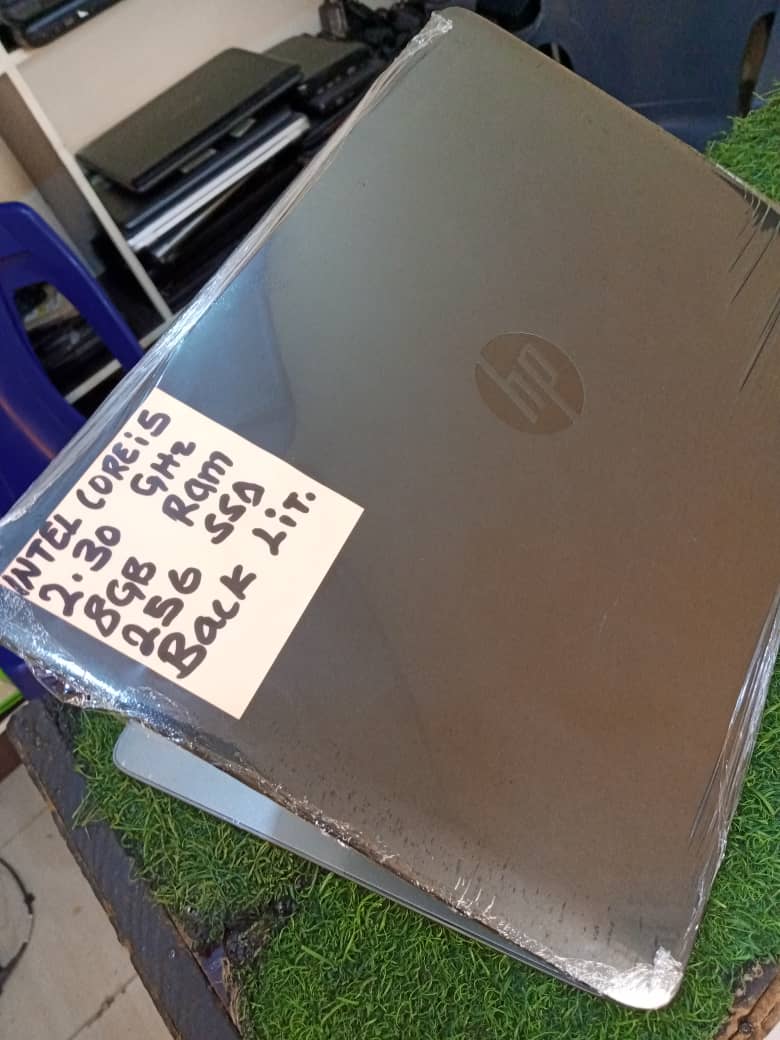 INTEL COREi5
2.30 GHz
8GB Ram
256 SSD
Back Lit.
hp